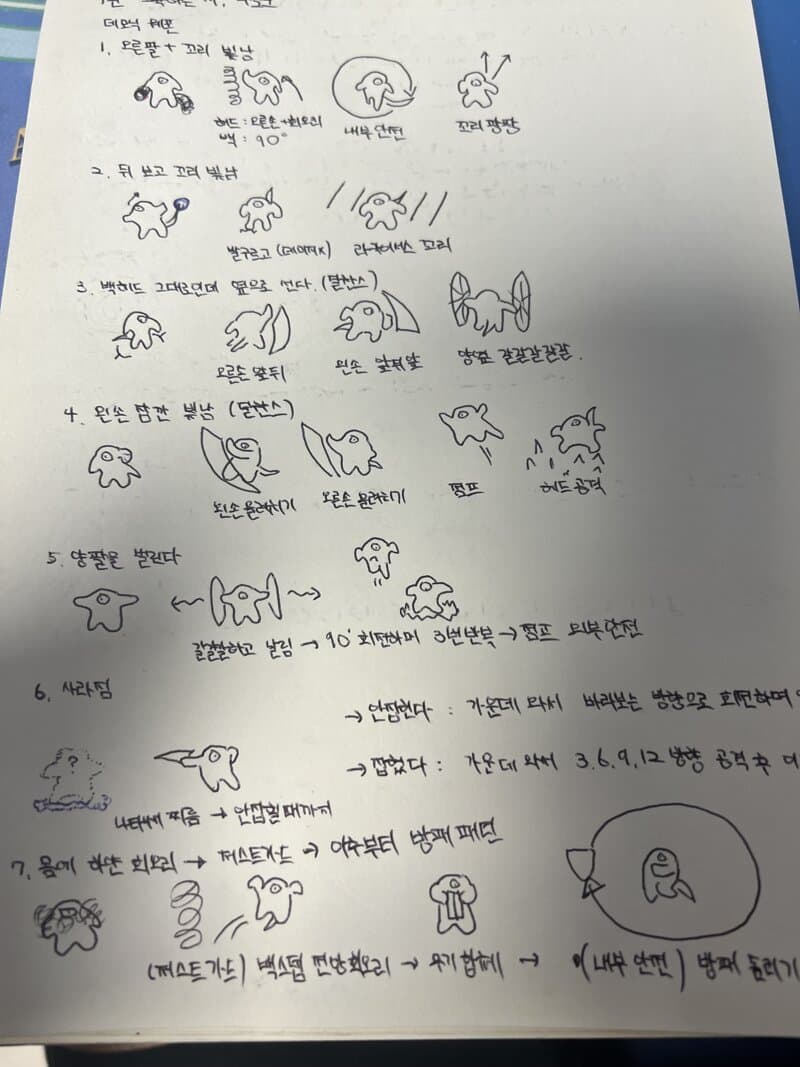 데모닉 웨폰
1. 오른팔 + 꼬리 빛남
헤드 : 오른손 + 회오리
백 : 90°
내부 안전
꼬리 팡팡
2. 뒤 보고 꼬리 빛남
발구르고 (데이터X)
꼬리
3. 백헤드 그대로인데 옆으로 선다. (딜찬스)
오른손 앞뒤
왼손 앞뒤앞
양옆 갈갈갈갈갈.
4. 왼손 잠깐 빛남 (딜찬스)
왼손 올려치기
오른손 올려치기
점프
헤드 공격
5. 양팔을 벌린다
갈갈갈하고 날림 → 90° 회전하며 3번 반복 → 점프 외부안전
6. 사라짐
→ 안잡힌다 : 가운데 와서 바라보는 방향으로 회전하며
?
→ 잡혔다 : 가운데 와서 3.6.9.12 방향 공격 후
나타나서 찌름 → 안잡힐때까지
7. 몸에 하얀 회오리 → 저스트가드 → 이후부터 방패 패턴
(저스트가드) 백스텝 전방회오리 → 무기합체 → (내부 안전) 방패 돌리기